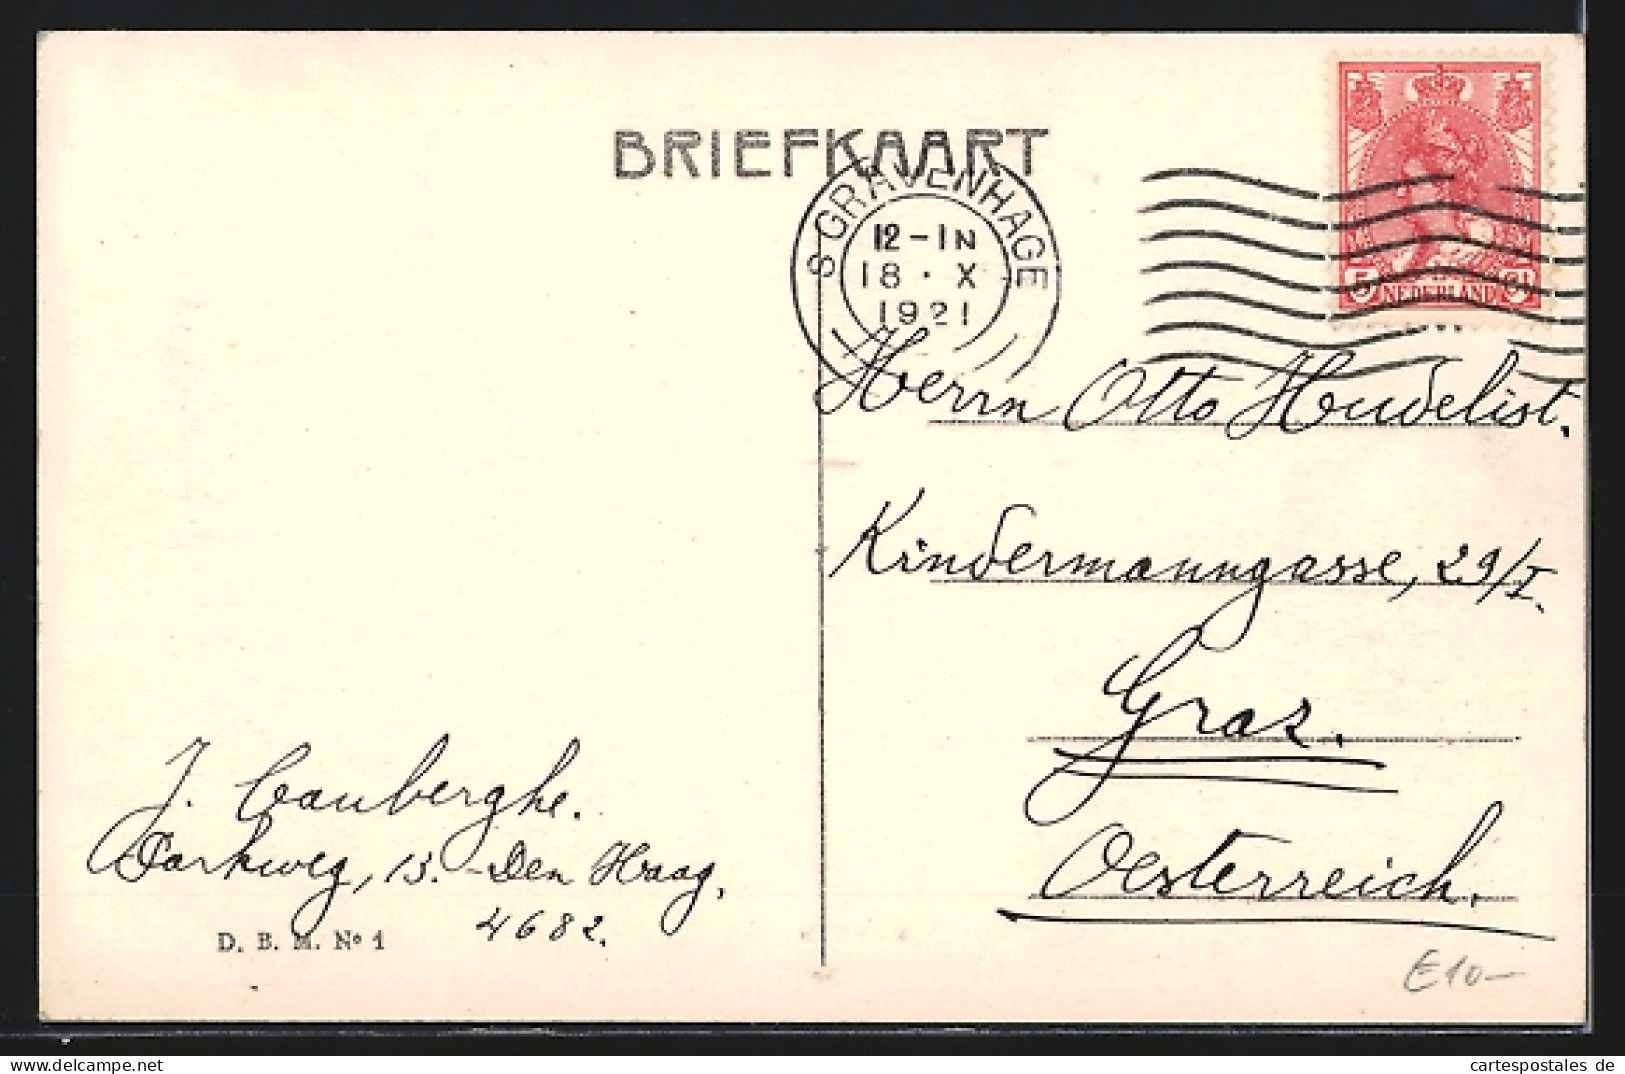 BRIEFKAART
'S GRAVENHAGE
12-1N
18·X
1921
5 NEDERLAND Ct
Herrn Otto Hudelist.
Kindermanngasse, 29/I.
Graz.
Oesterreich.
J. Cauberghe.
Parkweg, 15. - Den Haag.
4682.
D. B. M. Nº 1
€10-
cartespostales de